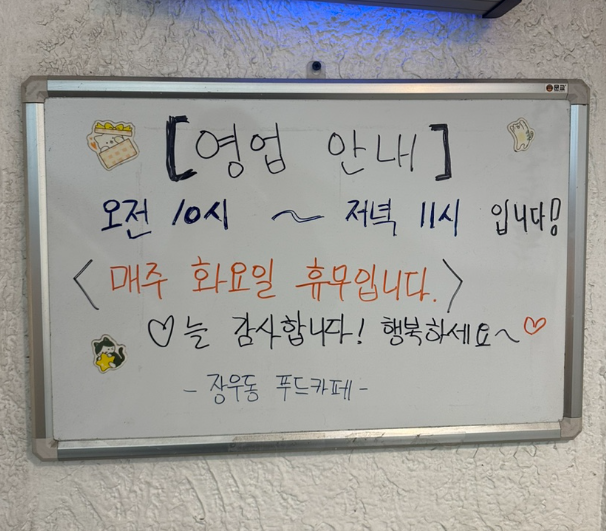 문교
[영업 안내]
오전 10시 ~ 저녁 11시 입니다!
<매주 화요일 휴무입니다.>
♡늘 감사합니다! 행복하세요~♡
- 장우동 푸드카페 -